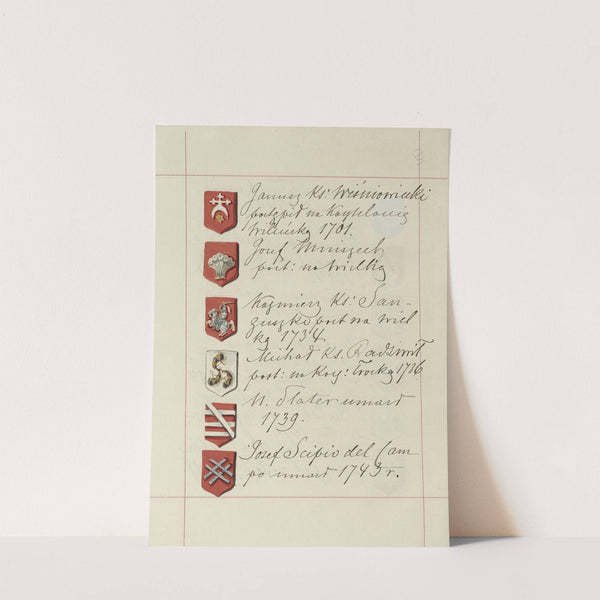 Janusz Ks: Wiśniowiecki
postąpił na
1701.
Józef Mniszech
post: na Wielką
Kazimierz Ks: San-
guszko post na Wiel
ką 1734.
Michał Ks. Radziwił
post: na Trocką 1736
M. Plater umarł
1739.
Józef Scipio del Cam-
po umarł 1743 r.